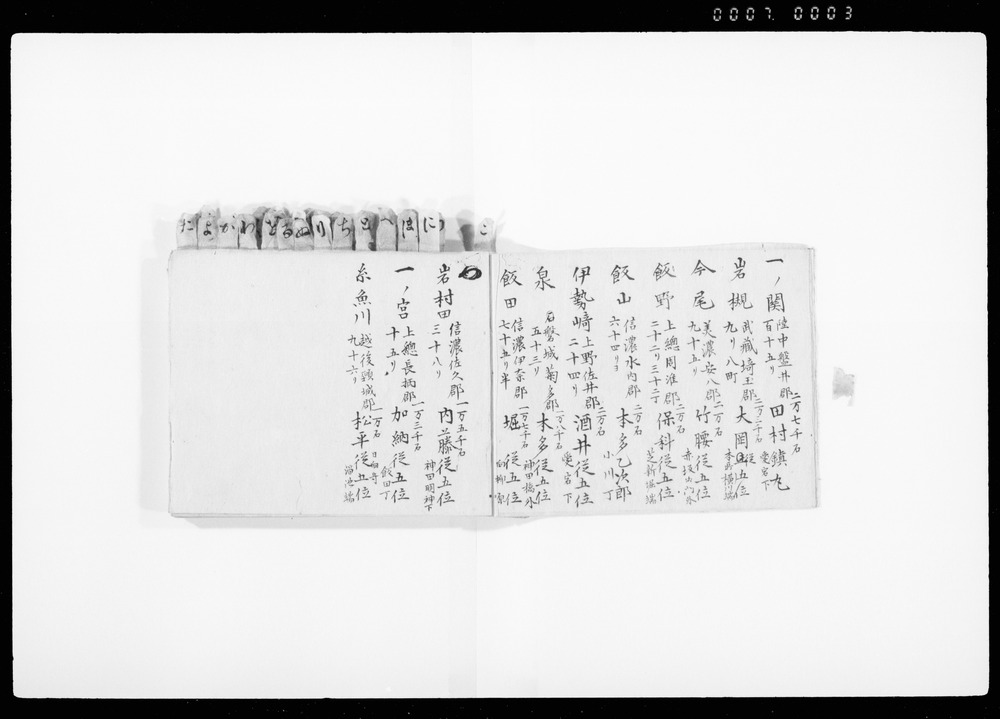 0007 0003
一ノ関 陸中盤井郡 百十五リ 二万七千石 田村鎮丸 愛宕下
岩槻 武藏埼玉郡 九リ八町 二万三千石 大岡従五位
今尾 美濃安八郡 九十五リ 二万石 竹腰従五位
飯野 上總周淮郡 二十二リ三十二丁 二万石 保科従五位 芝新堀端
飯山 信濃水内郡 六十四リヨ 二万石 本多乙次郎 小川丁
伊勢﨑 上野佐井郡 二十四リ 二万石 酒井従五位 愛宕下
泉 石磐城菊多郡 五十三リ 一万八千石 本多従五位 神田橋外
飯田 信濃伊奈郡 七十五リ半 一万七千石 堀従五位
岩村田 信濃佐久郡 三十八リ 一万五千石 内藤従五位 神田明神下
一ノ宮 上總長柄郡 十五リ 一万三千石 加納従五位 飯田丁
糸魚川 越後頸城郡 九十六リ 一万石 松平従五位 溜池端
たよかわをるぬりちとへほに